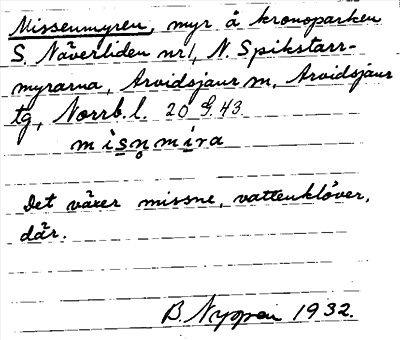 Missenmyren, myr å kronoparken
S. Näverliden nr 1, N. Spikstarr-
myrarna, Arvidsjaur sn, Arvidsjaur
tg, Norrb. l. 20 G. 43.
misn̥mira
Det växer missne, vattenklöver,
där.
B. Nyppen 1932.